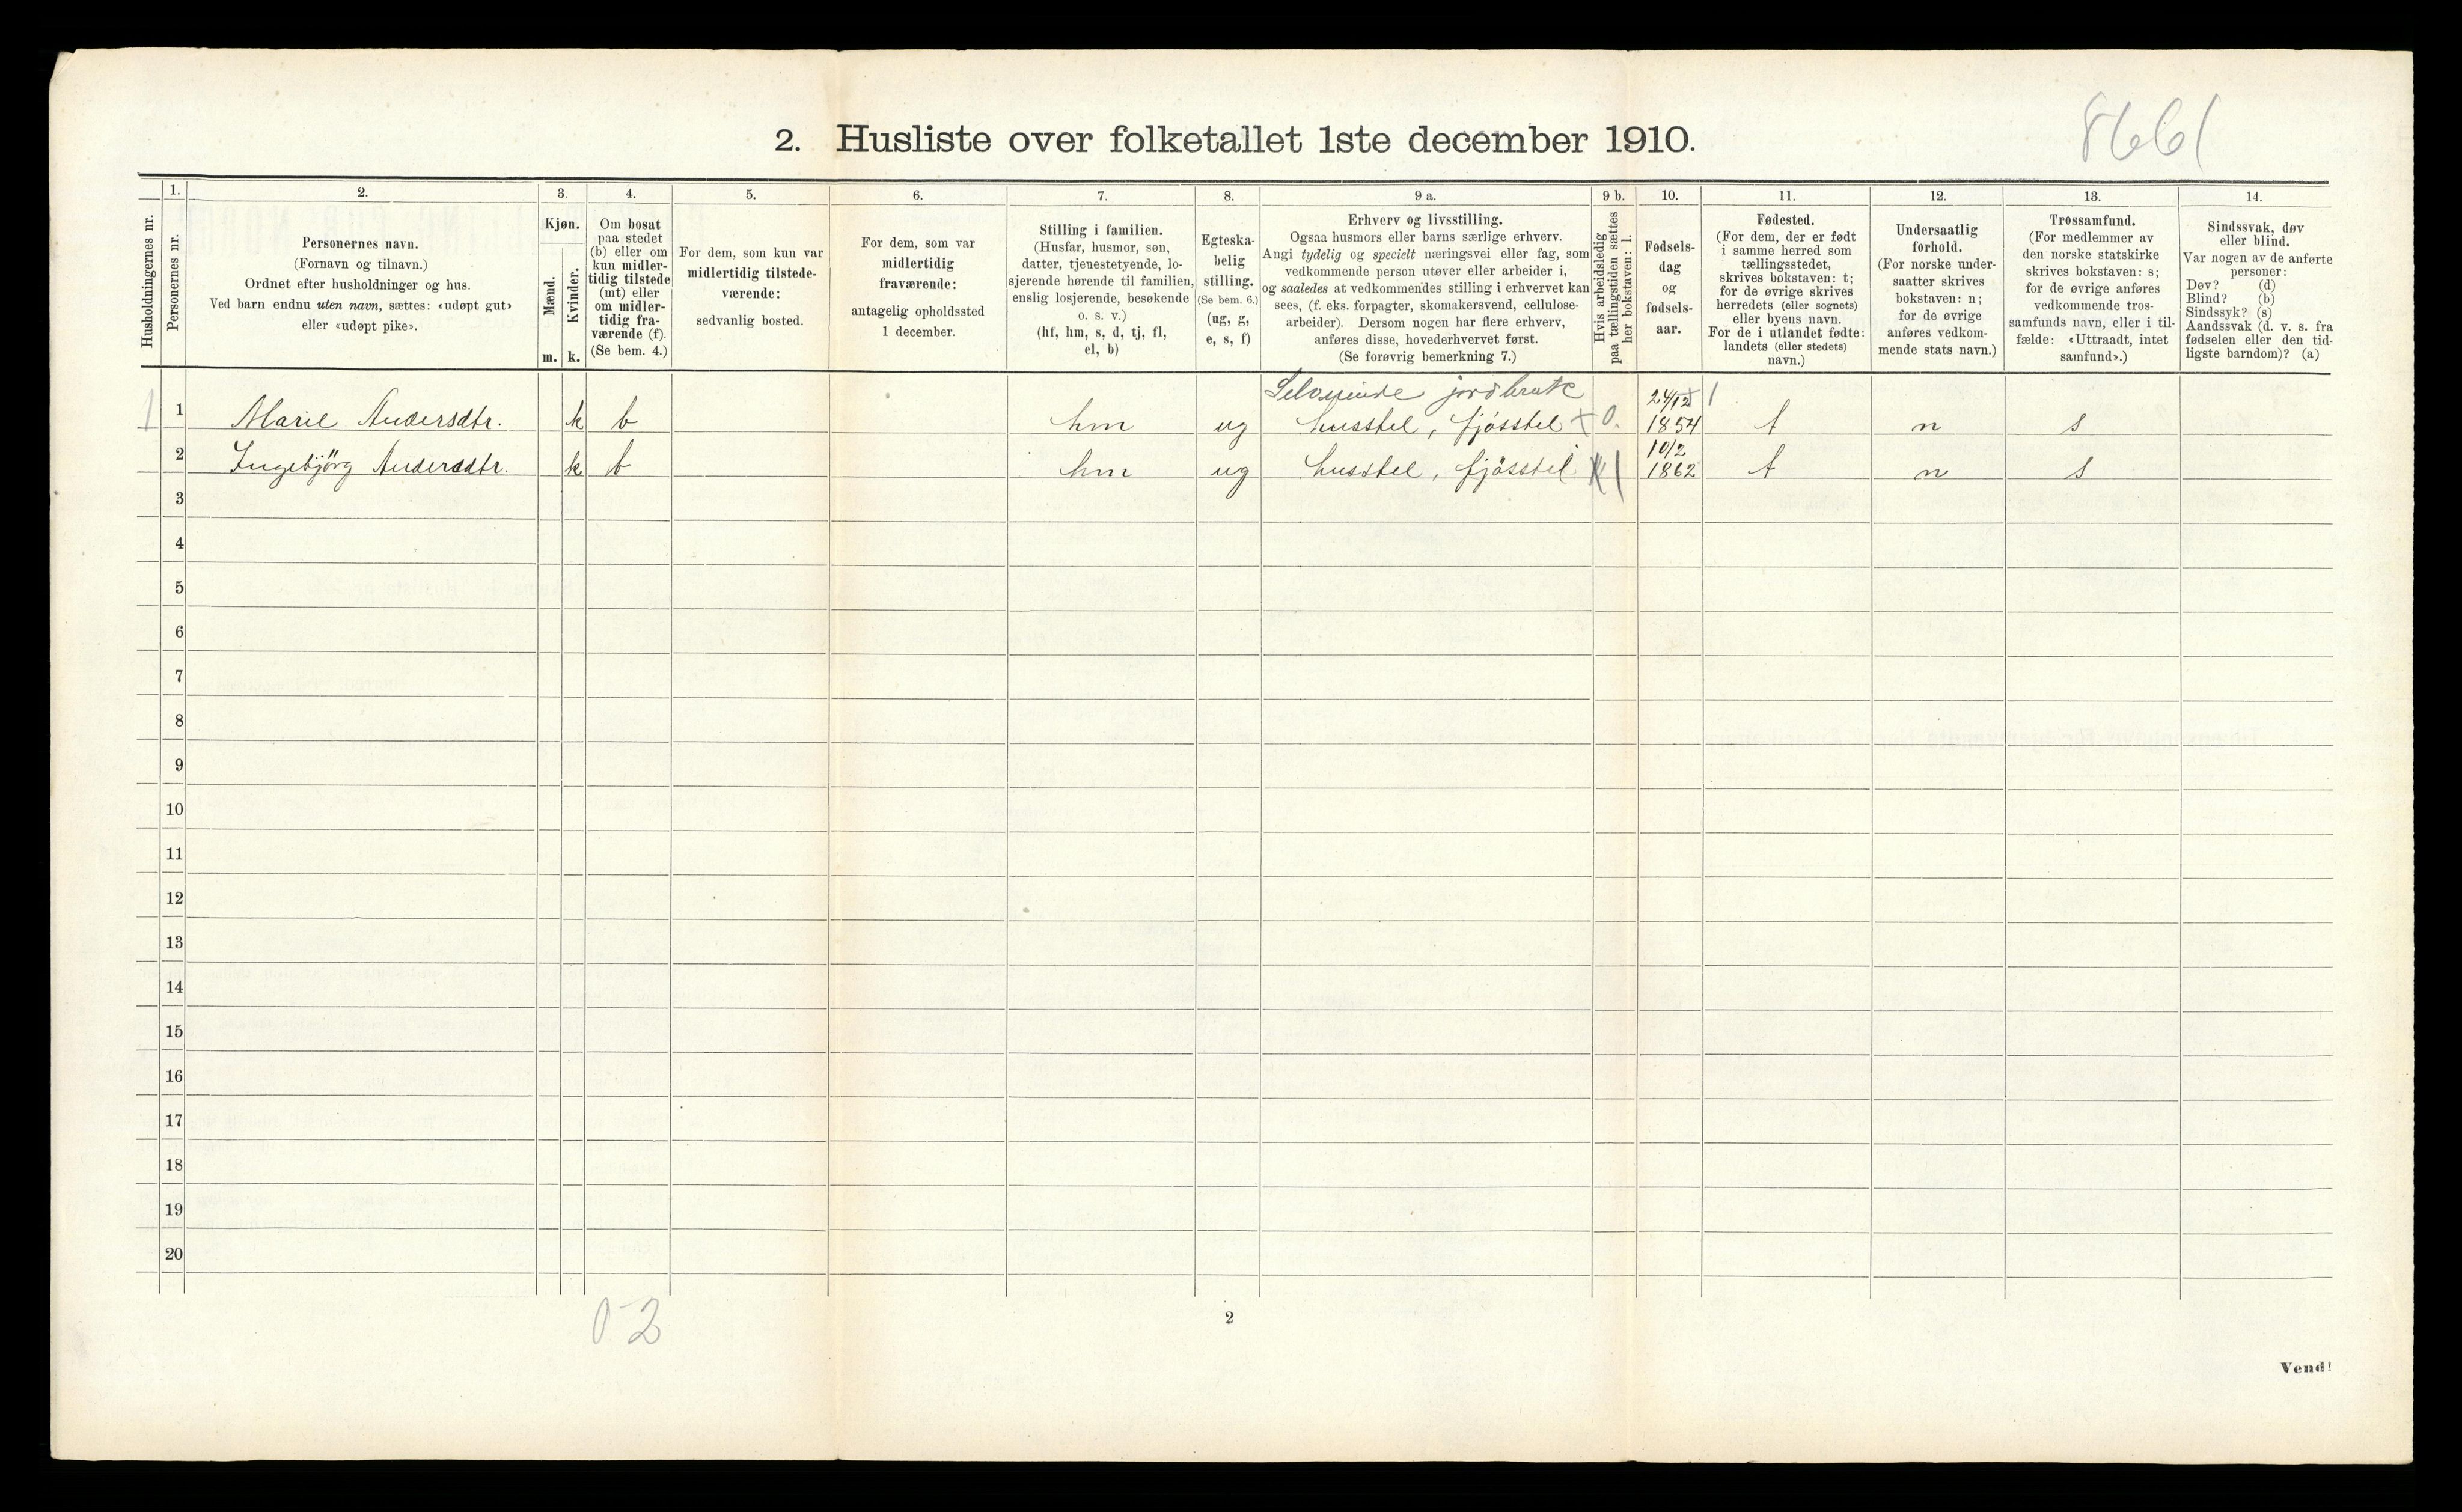 8661
2. Husliste over folketallet 1ste december 1910.
Husholdningernes nr.
1.
Personernes nr.
2.
Personernes navn.
(Fornavn og tilnavn.)
Ordnet efter husholdninger og hus.
Ved barn endnu uten navn, sættes: «udøpt gut»
eller «udøpt pike».
3.
Kjøn.
Mænd.
Kvinder.
m. k.
4.
Om bosat
paa stedet
(b) eller om
kun midler-
tidig tilstede
(mt) eller
om midler-
tidig fra-
værende (f).
(Se bem. 4.)
5.
For dem, som kun var
midlertidig tilstede-
værende:
sedvanlig bosted.
6.
For dem, som var
midlertidig
fraværende:
antagelig opholdssted
1 december.
7.
Stilling i familien.
(Husfar, husmor, søn,
datter, tjenestetyende, lo-
sjerende hørende til familien,
enslig losjerende, besøkende
o. s. v.)
(hf, hm, s, d, tj, fl,
el, b)
8.
Egteska-
belig
stilling.
(Se bem. 6.)
(ug, g,
e, s, f)
9 a.
Erhverv og livsstilling.
Ogsaa husmors eller barns særlige erhverv.
Angi tydelig og specielt næringsvei eller fag, som
vedkommende person utøver eller arbeider i,
og saaledes at vedkommendes stilling i erhvervet kan
sees, (f. eks. forpagter, skomakersvend, cellulose-
arbeider). Dersom nogen har flere erhverv,
anføres disse, hovederhvervet først.
(Se forøvrig bemerkning 7.)
9 b.
Hvis arbeidsledig
paa tællingstiden sættes
her bokstaven: l.
10.
Fødsels-
dag
og
fødsels-
aar.
11.
Fødested.
(For dem, der er født
i samme herred som
tællingsstedet,
skrives bokstaven: t;
for de øvrige skrives
herredets (eller sognets)
eller byens navn.
For de i utlandet fødte:
landets (eller stedets)
navn.)
12.
Undersaatlig
forhold.
(For norske under-
saatter skrives
bokstaven: n;
for de øvrige
anføres vedkom-
mende stats navn.)
13.
Trossamfund.
(For medlemmer av
den norske statskirke
skrives bokstaven: s;
for de øvrige anføres
vedkommende tros-
samfunds navn, eller i til-
fælde: «Uttraadt, intet
samfund».)
14.
Sindssvak, døv
eller blind.
Var nogen av de anførte
personer:
Døv? (d)
Blind? (b)
Sindssyk? (s)
Aandssvak (d. v. s. fra
fødselen eller den tid-
ligste barndom)? (a)
Selveiende jordbruk 24/12 1
1 1 Marie Andersdtr. k b hm ug husstel, fjösstel + 0. 1854 t n s
10/2
2 Ingebjörg Andersdtr. k b hm ug husstel, fjösstel 1862 t n s
3
4
5
6
7
8
9
10
11
12
13
14
15
16
17
18
19
20
0-2
2
Vend!